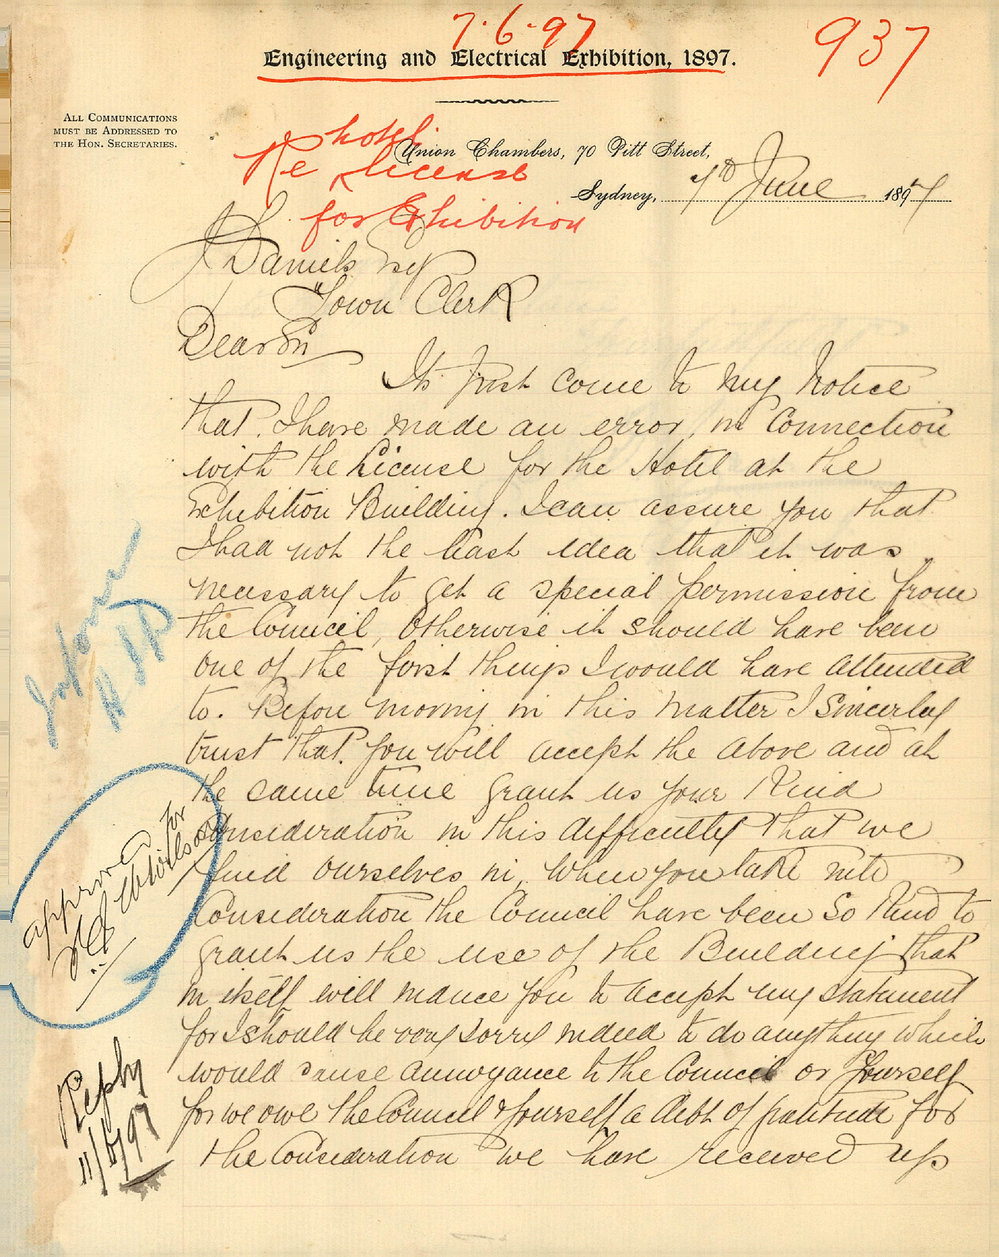 7.6.97
937
Engineering and Electrical Exhibition, 1897.
ALL COMMUNICATIONS
MUST BE ADDRESSED TO
THE HON. SECRETARIES.
Union Chambers, 70 Pitt Street,
Sydney, 7th June 1897
Re hotel
license
for Exhibition
Daniels Esq
Town Clerk
Dear Sir
Its just come to my notice
that I have made an error in connection
with the License for the Hotel at the
Exhibition Building. I can assure you that
I had not the least idea that it was
necessary to get a special permission from
the Council, otherwise it should have been
one of the first things I would have attended
to. Before moving in this matter I sincerley
trust that you will accept the above and at
the same time grant us your kind
consideration in this difficulty that we
find ourselves in, when you take into
consideration the Council have been so kind to
grant us the use of the Building that
in itself will induce you to accept my statement
for I should be very sorry indeed to do anything which
would cause annoyance to the Council or yourself
for we owe the Council & yourself a debt of gratitude for
the consideration we have received up
Inform
approved for
Reply
11/6/97